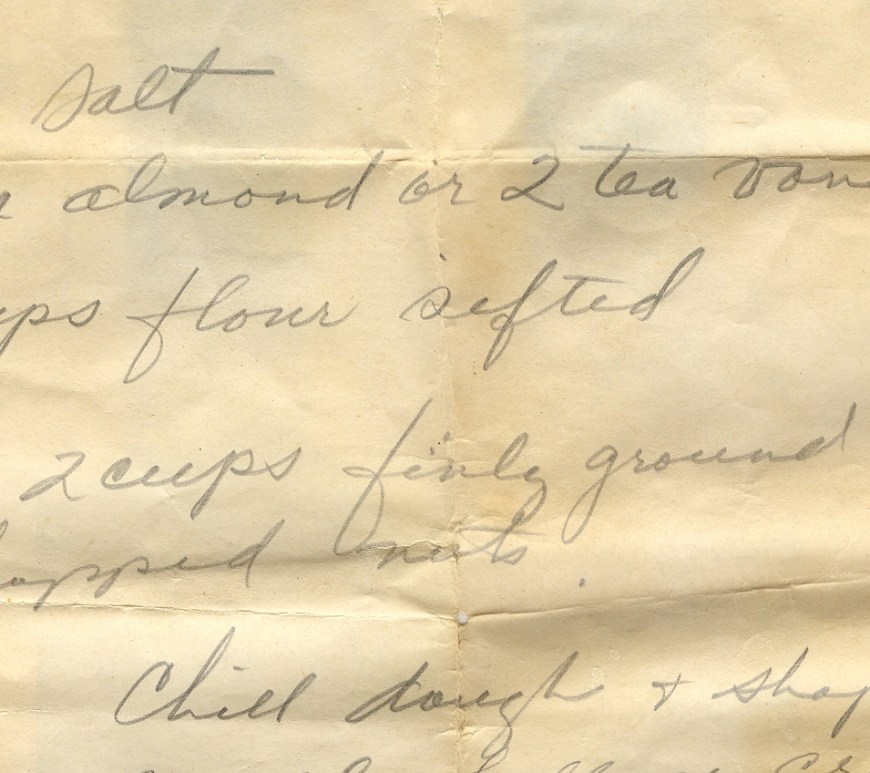 salt
almond or 2 tea van
ups flour sifted
2 cups finly ground
hopped nuts.
Chill dough + shap